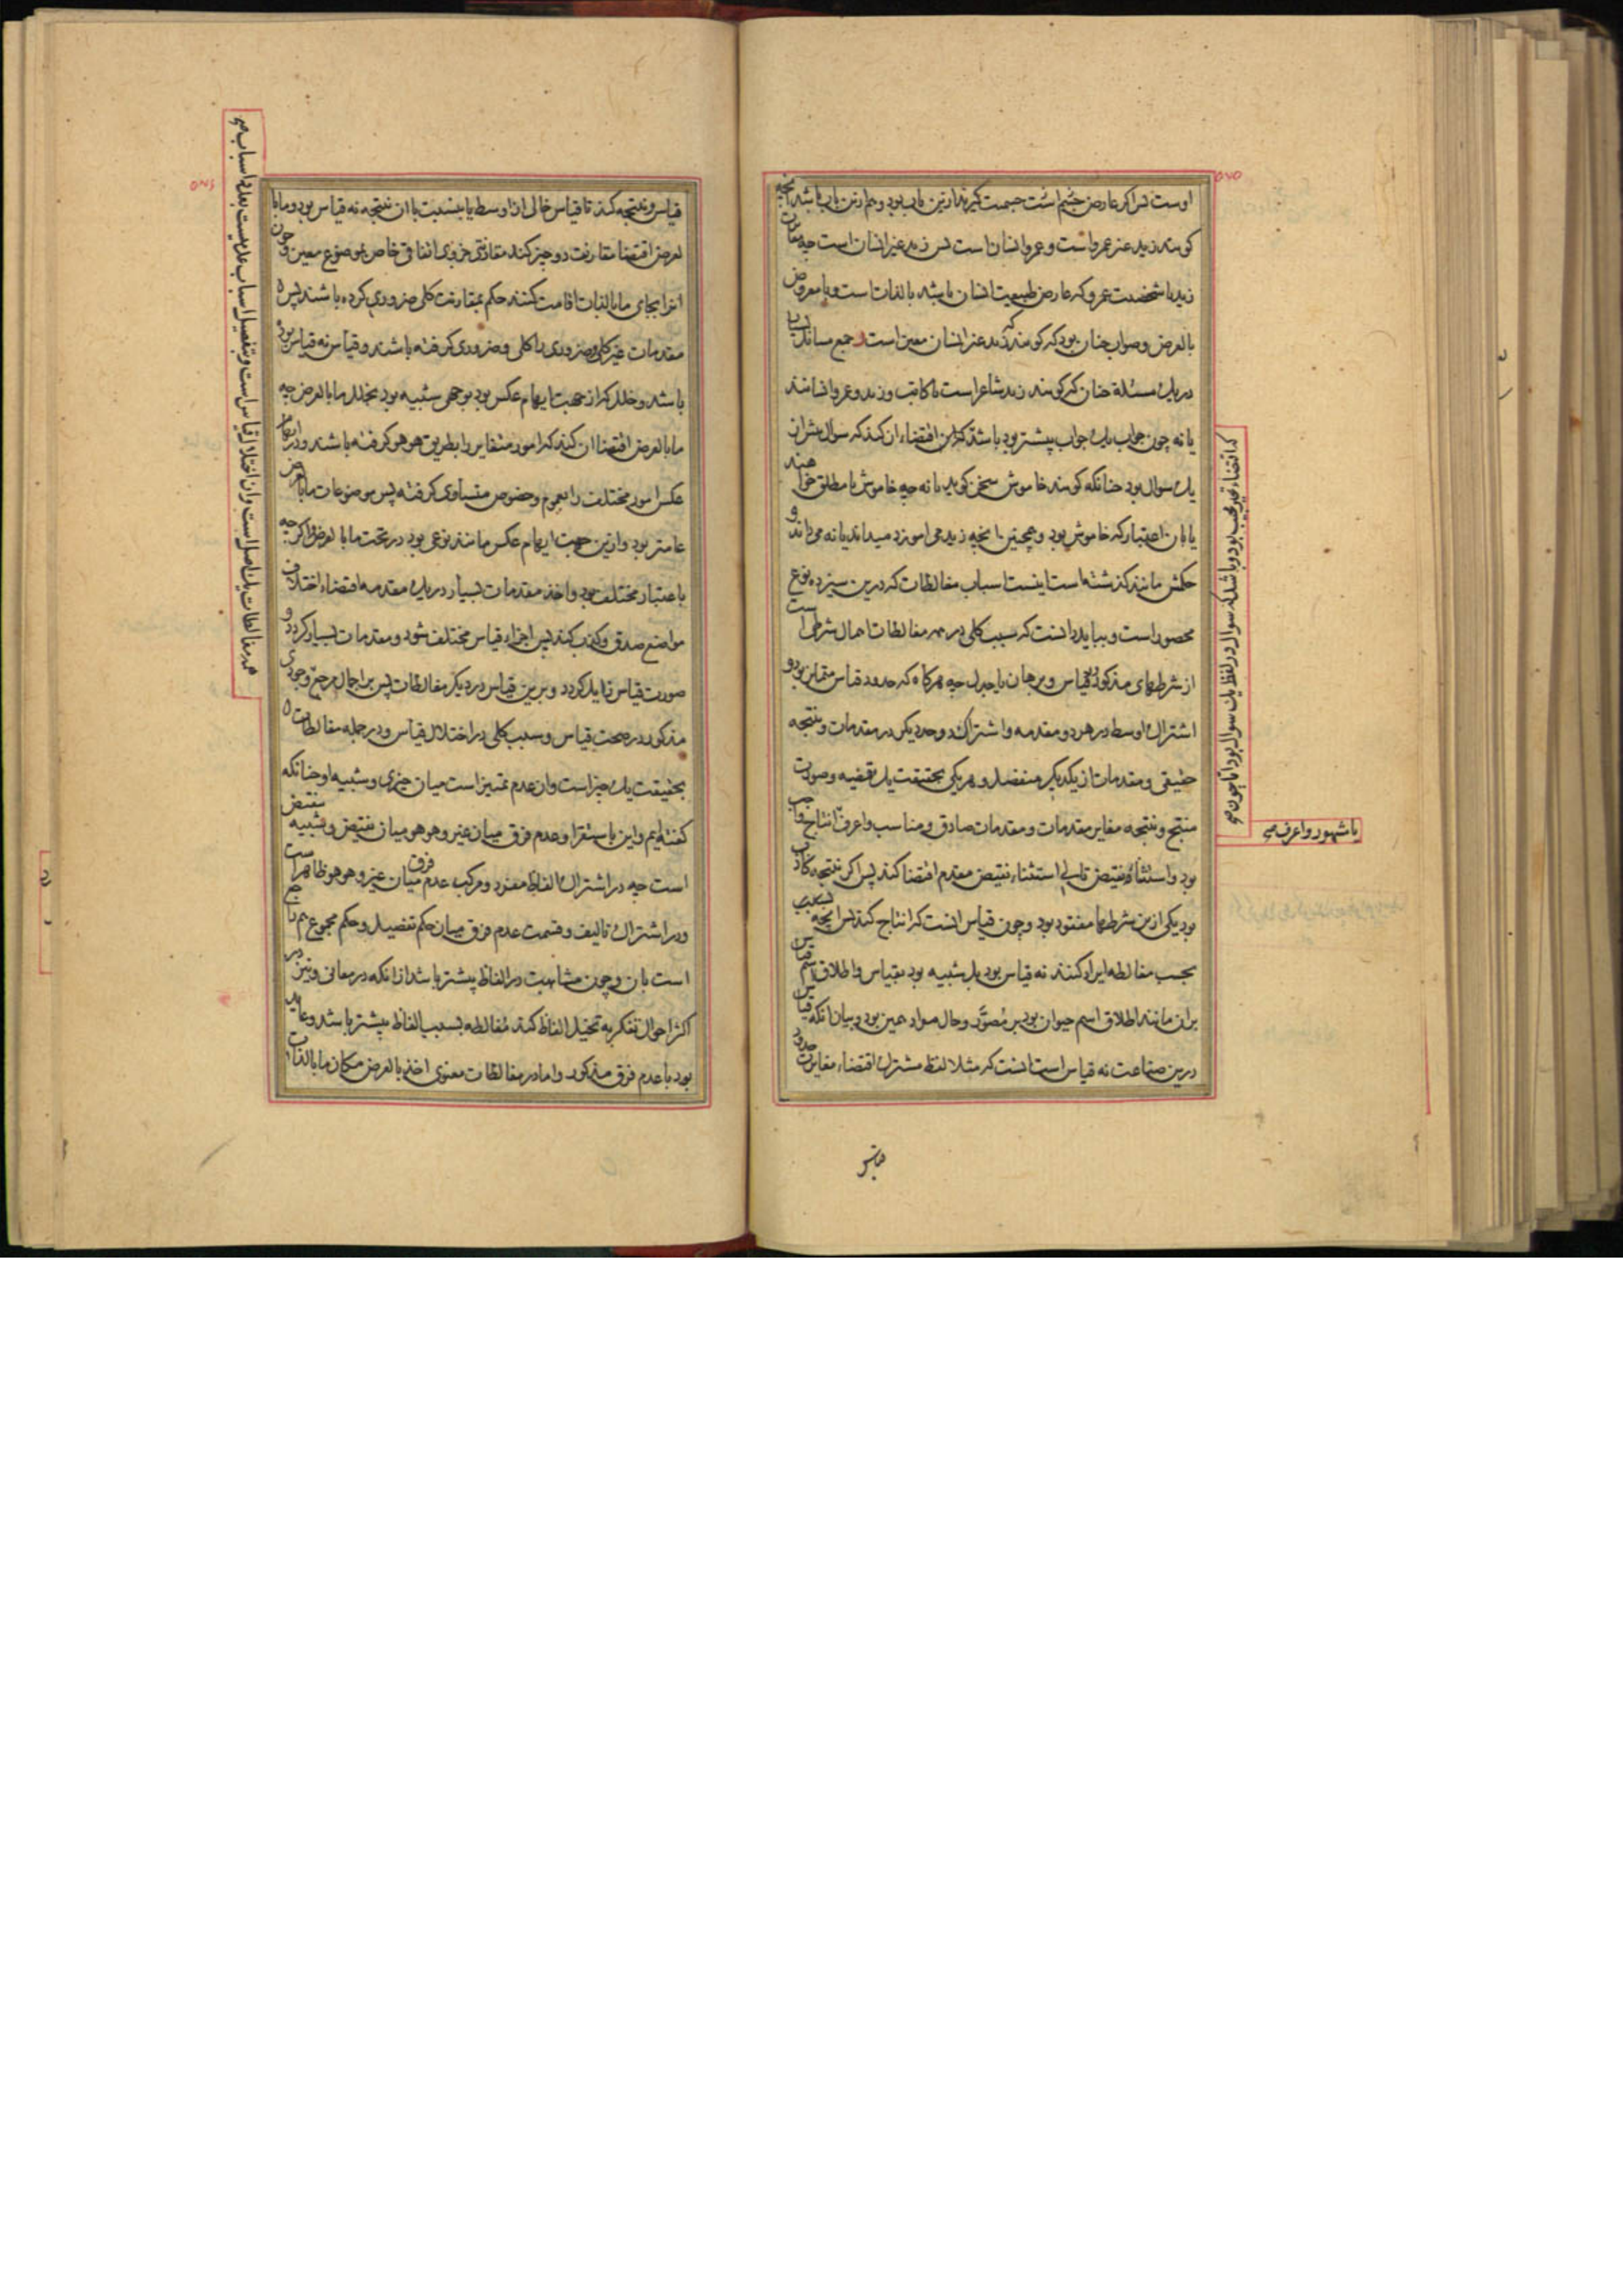 اوست پس اگر عارض جسم است جسمیت گیرند ازین باب بود و هم ازین باب باشد آنچه
کویند زید غیر عمرو است و عمرو انسان است پس زید غیر انسان است چه مغایرت
زید با شخصیت عمرو که عارض طبیعت انسان باشد بالذات است و با معروض
بالعرض و صواب چنان بود که کویند که زید غیر انسان معین است و جمع مسائل
در یک مسئله چنان که کویند زید شاعر است یا کاتب و زید و عمرو انسانند
یا نه چون جواب یک جواب پیشتر بود باشد که این اقتضاء آن کند که سؤال
یک سوال بود چنانکه کویند خاموش سخن کوید یا نه چه خاموش یا مطلق خواهند
یا بان اعتبار که خاموش بود و همچنین آنچه زید می آموزد میداند یا نه می داند و
حکمش مانند گذشته است اینست اسباب مغالطات که درین سیزده نوع
محصور است و بباید دانست که سبب کلی در همه مغالطات اهمال شرطی است
از شرطهای مذکور در قیاس و برهان یا جدل چه هرگاه که حدود قیاس متمایز بود و
اشتراک اوسط در هر دو مقدمه و اشتراک دو حد دیگر در مقدمات و نتیجه
حقیقی و مقدمات از یکدیگر منفصل و هر یکی بحقیقت یک قضیه و صورت
منتج و نتیجه مغایر مقدمات و مقدمات صادق و مناسب و اعرف انتاج واجب
بود و استثناء نقیض تالی استثناء نقیض مقدم اقتضا کند پس اگر نتیجه کاذب
بود یکی ازین شرطها مفقود بود و چون قیاس آنست که انتاج کند پس آنچه بسبب
بحسب مغالطه ایراد کنند نه قیاس بود بل شبیه بود بقیاس و اطلاق اسم قیاس
بران مانند اطلاق اسم حیوان بود بر مصوّر و حال مواد همین بود و بیان آنکه قیاس
درین صناعت نه قیاس است آنست که مثلا لفظ مشترک اقتضاء مغایرت حدود
که اقتضاء تحیر مجیب بود و باشد که سوال در لفظ یک سوال بود اما چون
یا مشهور و اعرف
قیاس و نتیجه کند تا قیاس خالی از اوسط یا بنسبت با آن نتیجه نه قیاس بود و ما با
لعرض اقتضا مقارنت دو چیز کند مقارنتی جزوی اتفاقی خاص بموضوع معین و چون
انرا بجای ما بالذات اقامت کنند حکم بمقارنت کلی ضروری کرده باشند پس
مقدمات غیر کلی و ضروری را کلی و ضروری گرفته باشند و قیاس نه قیاس بوده
باشد و خلل که از جهت ایهام عکس بود بوجهی شبیه بود بخلل ما بالعرض چه
ما بالعرض اقتضا ان کند که امور متغایر را بطریق هو هو گرفته باشند و در ایهام
عکس امور مختلف را بعموم و خصوص متساوی گرفته پس موضوعات ما بالعرض
عامتر بود و ازین جهت ایهام عکس مانند نوعی بود در تحت ما بالعرض و اگر چه
باعتبار مختلف بود و اخذ مقدمات بسیار در یک مقدمه اقتضاء اختلاف
مواضع صدق و کذب کند پس اجزاء قیاس مختلف شود و مقدمات بسیار کردد و
صورت قیاس زایل کردد و برین قیاس در دیگر مغالطات پس بر اجمال مرجع وجوه
مذکور در صحت قیاس و سبب کلی در اختلال قیاس و در جمله مغالطات
بحقیقت یک چیز است و آن عدم تمییز است میان چیزی و شبیه او چنانکه
کفته ایم و این باستقرا و عدم فرق میان غیر و هو هو میان نقیض و شبیه نقیض
است چه در اشتراک الفاظ مفرد و مرکب عدم فرق میان غیر و هو هو ظاهر است
و در اشتراک تالیف و قسمت عدم فرق میان حکم تفصیل و حکم مجموع هم راجع
است بان و چون مشابهت در الفاظ پیشتر باشد از آنکه در معانی و نیز در
اکثر احوال تفکر به تخیل الفاظ کند مغالطه بسبب الفاظ پیشتر باشد و عاید
بود با عدم فرق مذکور و اما در مغالطات معنوی اخذ بالعرض مکان ما بالذات
همه مغالطات یک اصل است و آن اختلال قیاس است و تفصیل اسباب